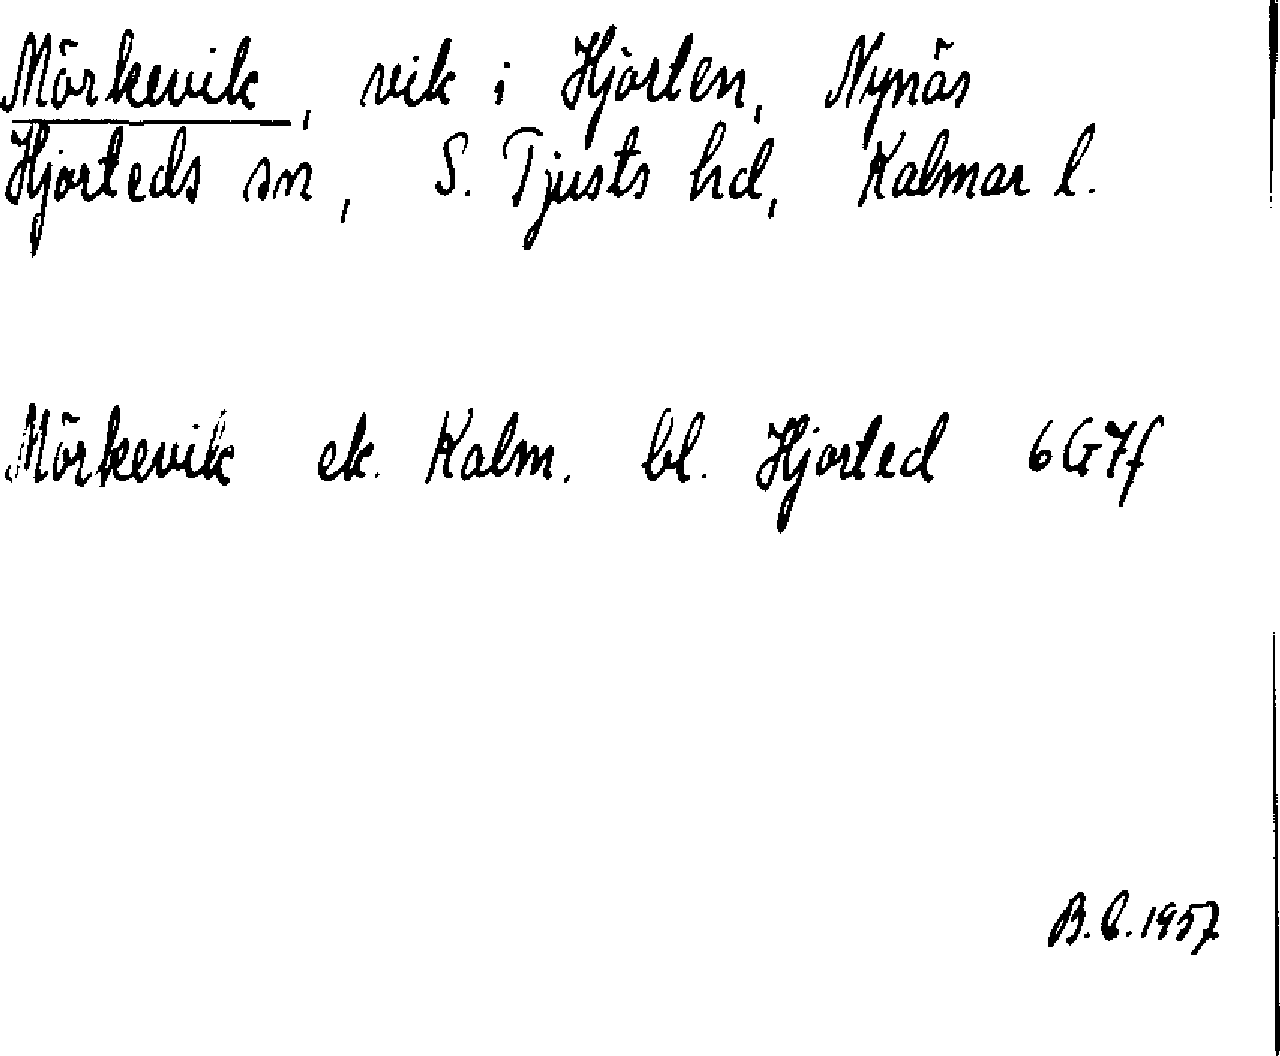 Mörkevik, vik i Hjorten, Nynäs
Hjorteds sn, S. Tjusts hd, Kalmar l.
Mörkevik ek. Kalm. bl. Hjorted 6G7f
B.C.1957